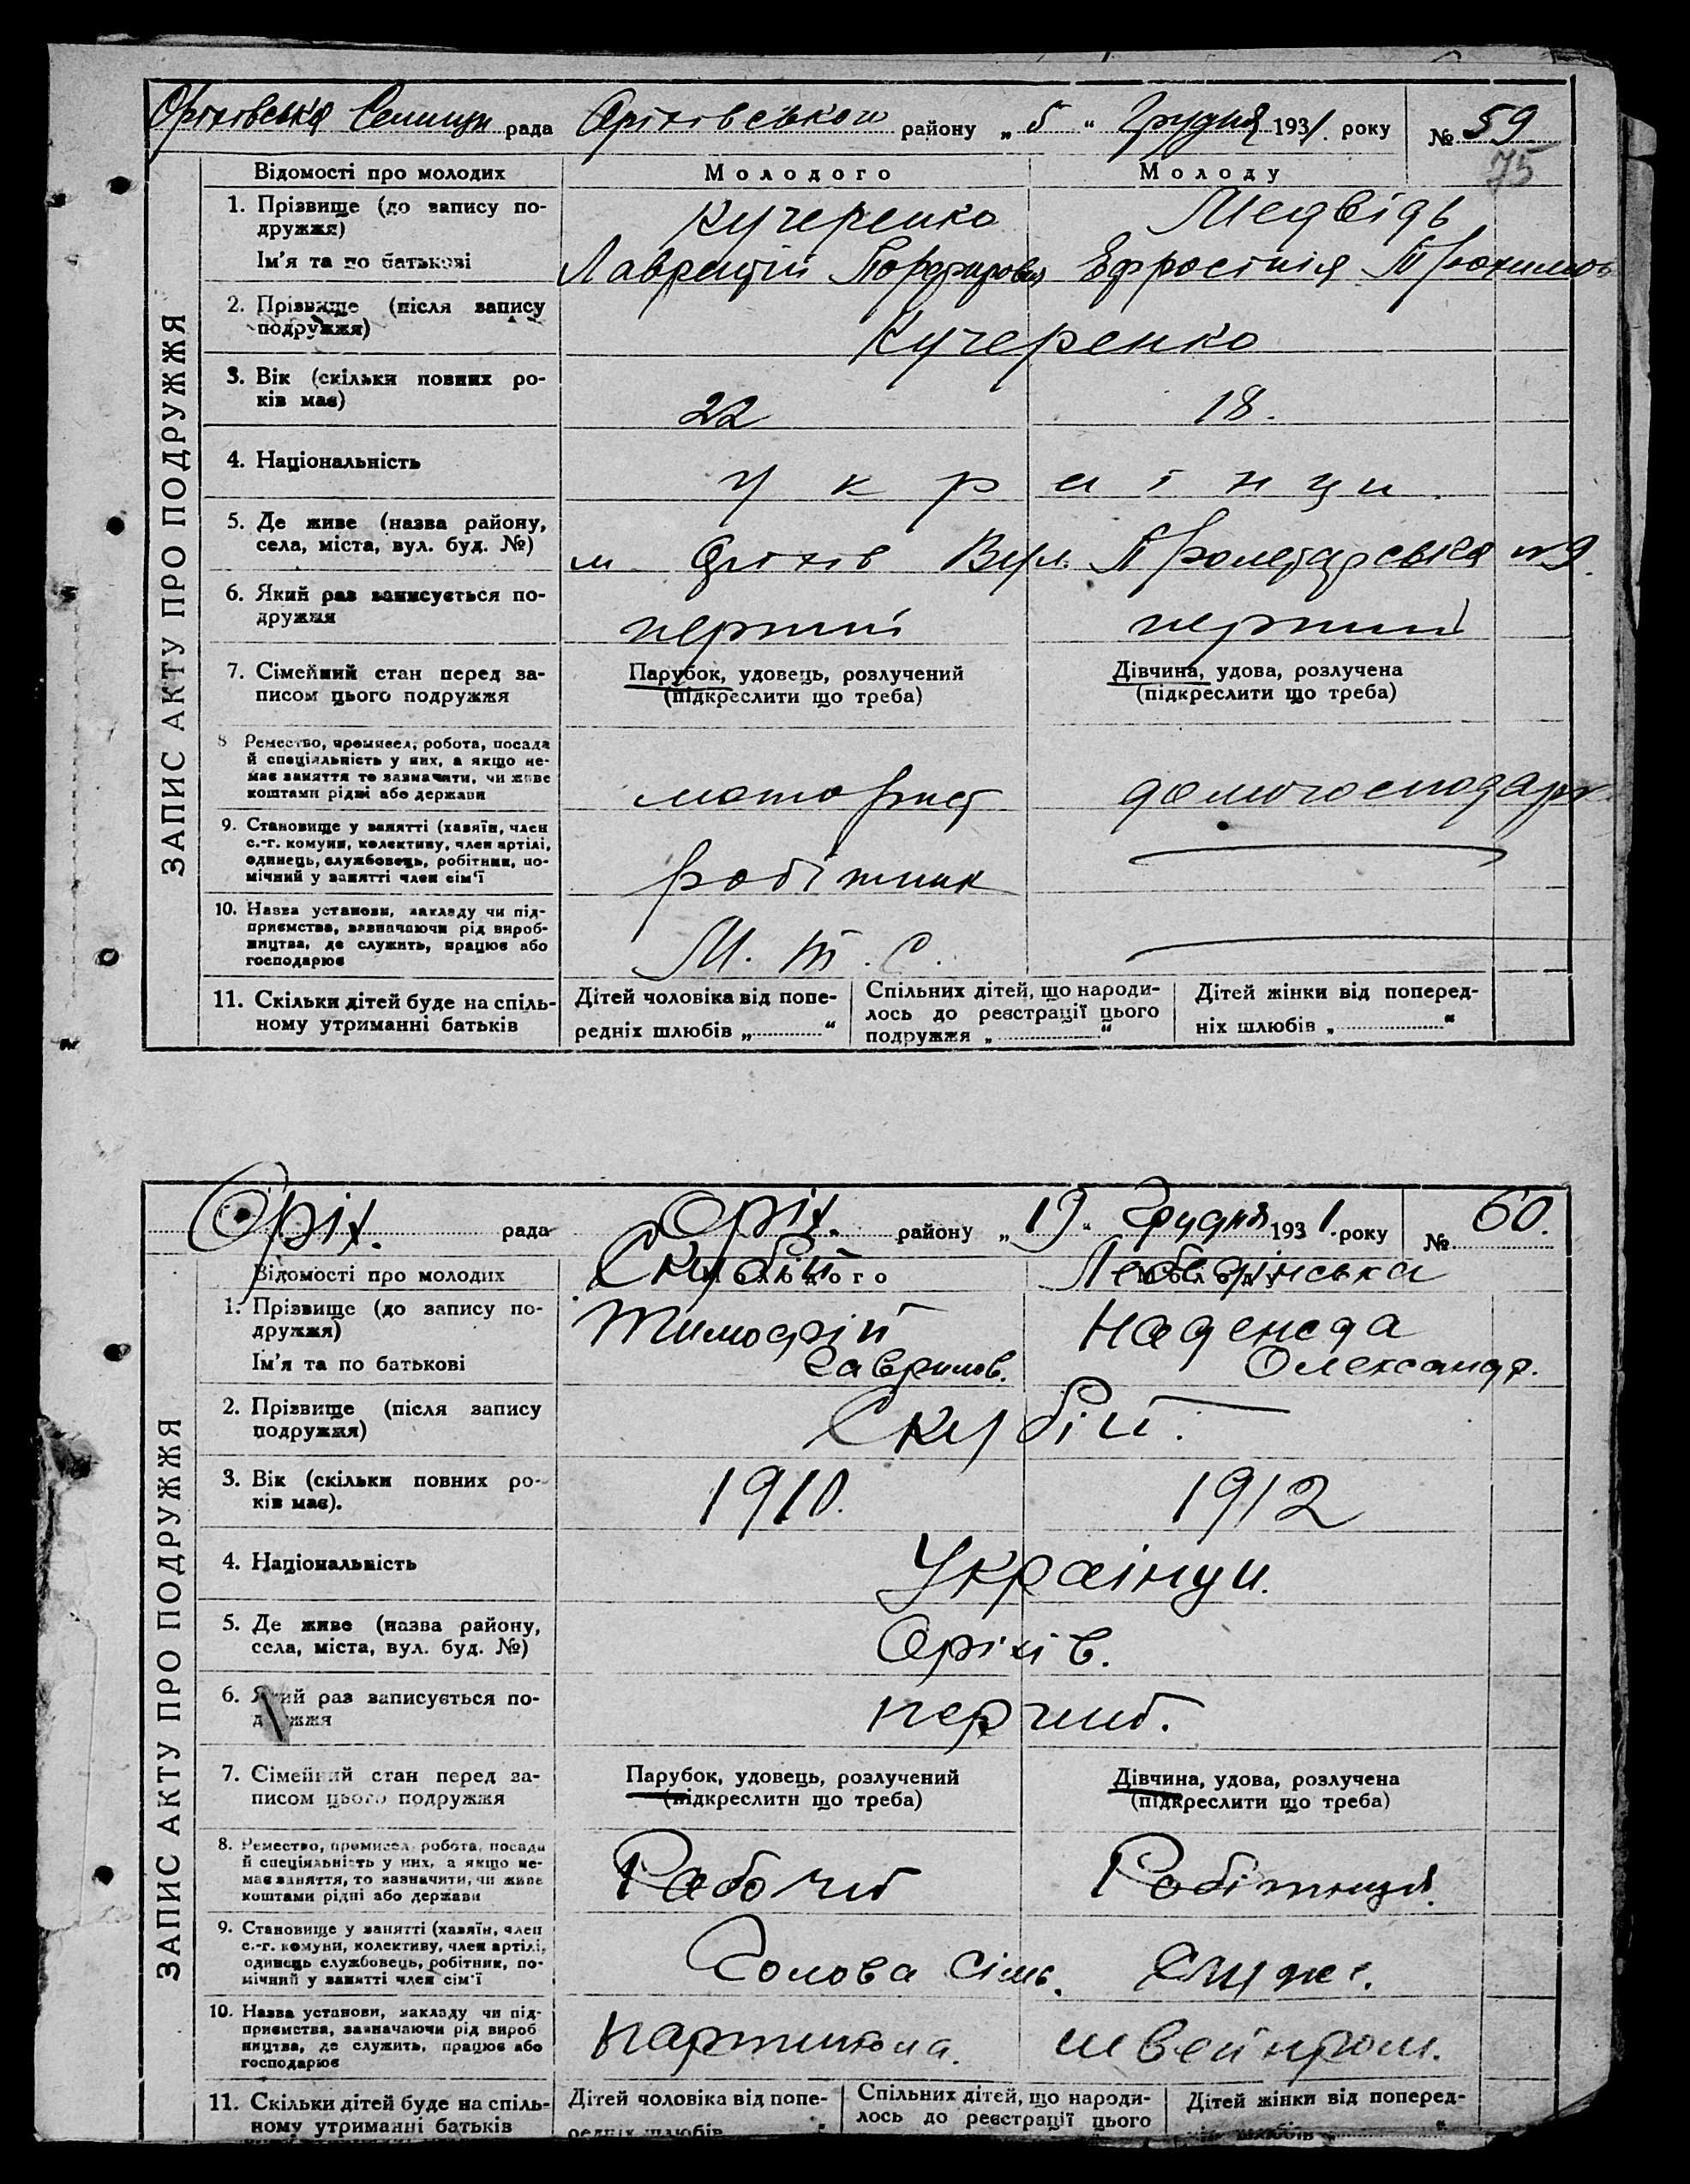 Оріхівська Селищн рада Оріхівськом району „ 5 “ Грудня 1931. року № 59
75
Відомості про молодих Молодого Молоду
1. Прізвище (до запису по- Кучеренко Медвідь
дружжя)
Ім'я та по батькові Лаврентій Порфирович Ефросінія
2. Прізвище (після запису
подружжя) Кучеренко
3. Вік (скільки повних ро-
ків має) 22 18.
4. Національність українци.
5. Де живе (назва району,
села, міста, вул. буд. №) м. Оріхів Вул. Пролетарська №9.
6. Який раз записується по-
дружжя перший перший
7. Сімейний стан перед за- Парубок, удовець, розлучений Дівчина, удова, розлучена
писом цього подружжя (підкреслити що треба) (підкреслити що треба)
8 Ремество, промисел, робота, посада
й спеціяльність у них, а якщо не-
має заняття то зазначити, чи живе
коштами рідні або держави моторист домогосподарк.
9. Становище у занятті (хазяїн, член
с.-г. комуни, колективу, член артілі,
одинець, службовець, робітник, по-
мічний у занятті член сім'ї робітник
10. Назва установи, закладу чи під-
приємства, зазначаючи рід вироб-
ництва, де служить, працює або
господарює М. т. С.
11. Скільки дітей буде на спіль- Дітей чоловіка від попе- Спільних дітей, що народи- Дітей жінки від поперед-
ному утриманні батьків редніх шлюбів „ “ лось до реєстрації цього ніх шлюбів „ “
подружжя „ “
ЗАПИС АКТУ ПРО ПОДРУЖЖЯ
Оріх. рада Оріх. району „19“ Грудня 1931. року № 60.
Відомості про молодих Молодого Молоду
Скубій
1. Прізвище (до запису по- Тимофій Надежда
дружжя)
Ім'я та по батькові Гаврилов. Олександр.
2. Прізвище (після запису Скубій.
подружжя)
3. Вік (скільки повних ро- 1910. 1912
ків має).
4. Національність Українци.
5. Де живе (назва району, Оріхів.
села, міста, вул. буд. №)
6. Який раз записується по- перчий.
дружжя
7. Сімейний стан перед за- Парубок, удовець, розлучений Дівчина, удова, розлучена
писом цього подружжя (підкреслити що треба) (підкреслити що треба)
8. Ремество, промисел, робота, посада
й спеціяльність у них, а якщо не-
має заняття, то зазначити, чи живе Рабочий Робітниця.
коштами рідні або держави
9. Становище у занятті (хазяїн, член
с.-г. комуни, колективу, член артілі,
одинець службовець, робітник, по- Голова сім.
мічний у занятті член сім'ї
10. Назва установи, закладу чи під-
приємства, зазначаючи рід вироб швейпром.
ництва, де служить, працює або
господарює
11. Скільки дітей буде на спіль- Дітей чоловіка від попе- Спільних дітей, що народи- Дітей жінки від поперед-
ному утриманні батьків редніх шлюбів „ лось до реєстрації цього ніх шлюбів „ “
ЗАПИС АКТУ ПРО ПОДРУЖЖЯ